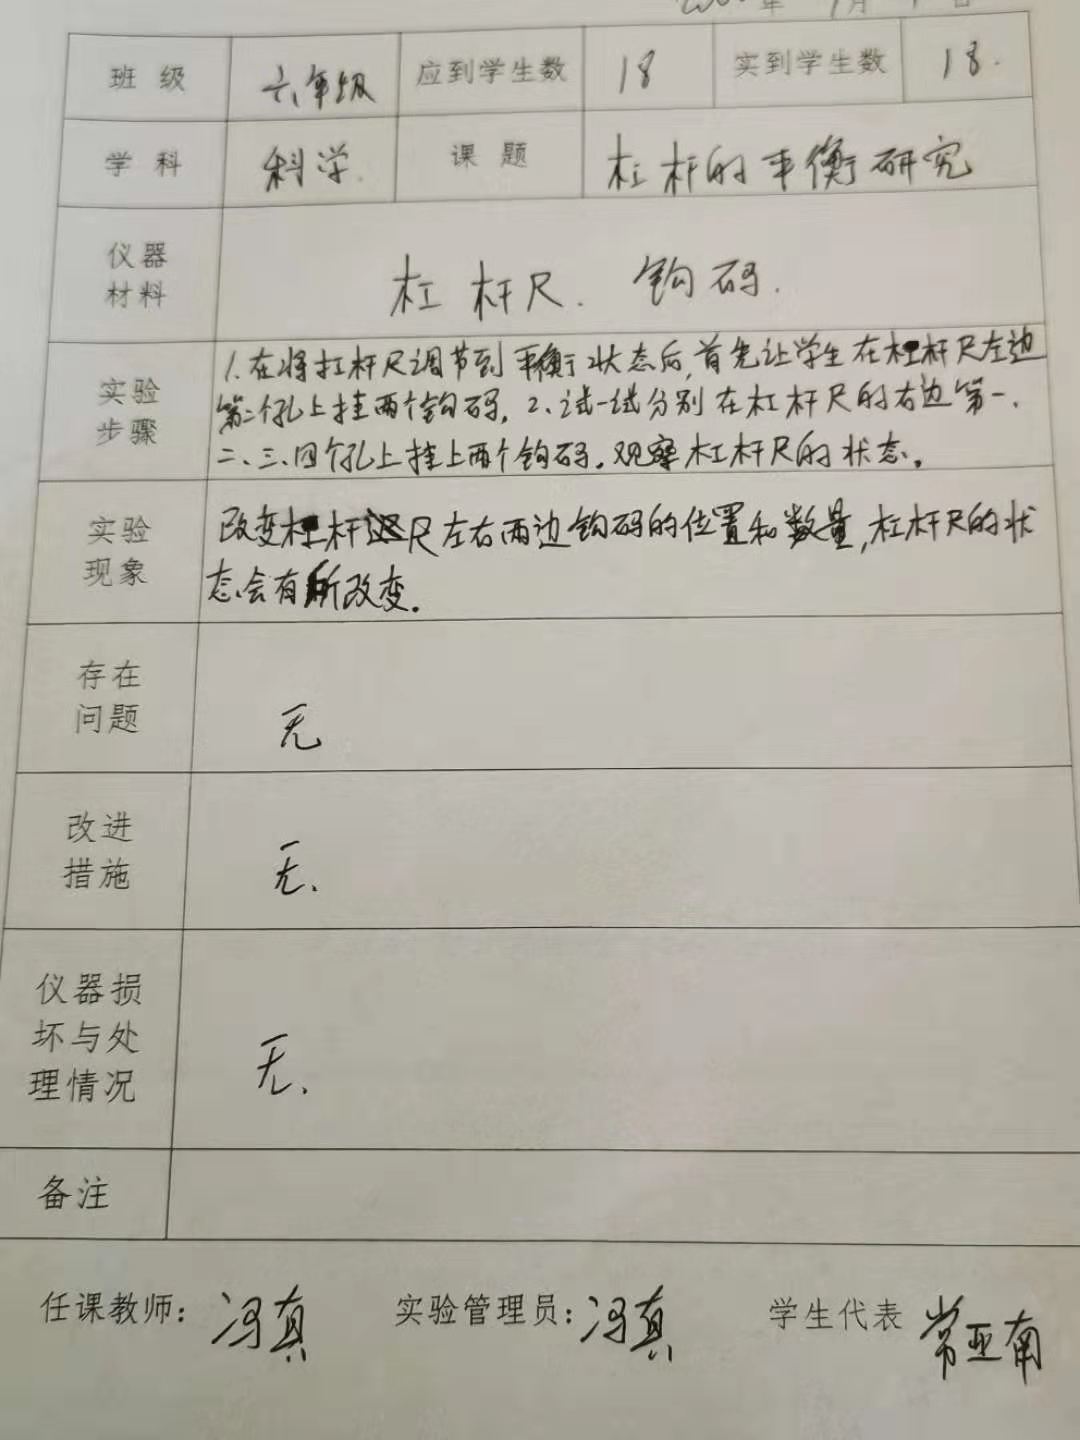 年 月 日
班 级 六年级 应到学生数 18 实到学生数 18.
学 科 科学. 课 题 杠杆的平衡研究
仪器
材料
杠杆尺. 钩码.
实验
步骤
1.在将杠杆尺调节到平衡状态后,首先让学生在杠杆尺左边
第二个孔上挂两个钩码. 2、试一试分别在杠杆尺的右边第一、
二、三、四个孔上挂上两个钩码.观察杠杆尺的状态.
实验
现象
改变杠杆尺左右两边钩码的位置和数量,杠杆尺的状
态会有所改变.
存在
问题
无
改进
措施
无.
仪器损
坏与处
理情况
无.
备注
任课教师: 冯真 实验管理员: 冯真 学生代表 常亚南